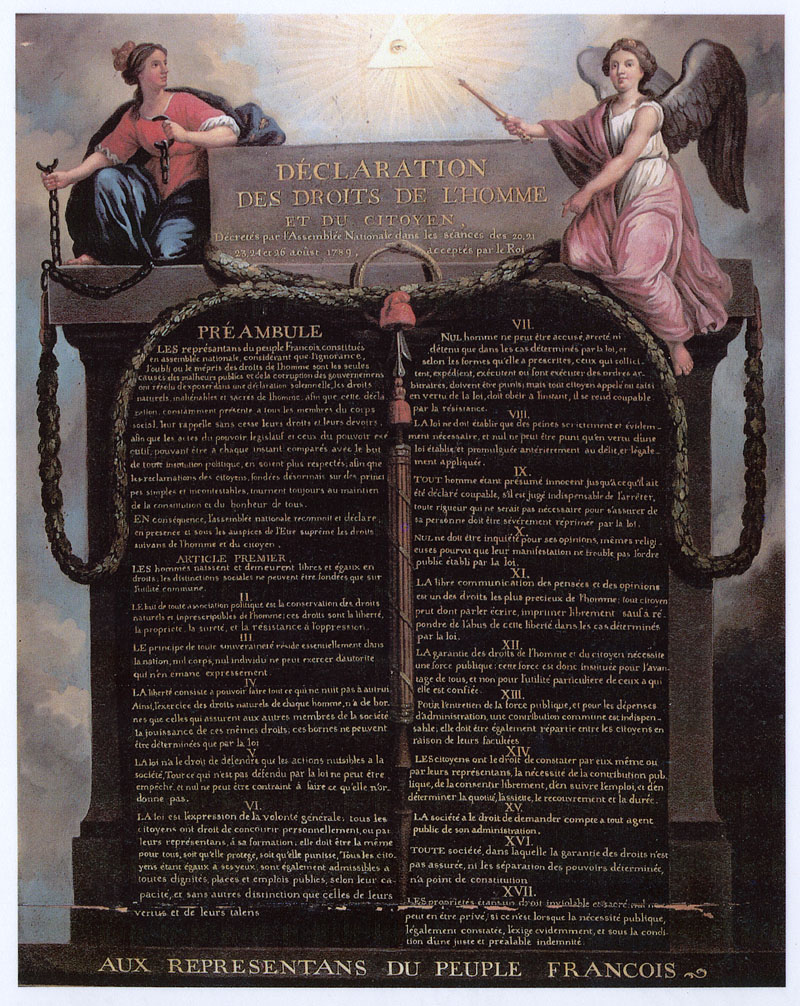 DÉCLARATION
DES DROITS DE L'HOMME
ET DU CITOYEN,
Décretés par l'Assemblée Nationale dans les séances des 20, 21
23, 24 et 26 aoûst 1789, acceptés par le Roi
PRÉAMBULE
LES représantans du peuple François, constitués
en assemblée nationale, considérant que l'ignorance,
l'oubli ou le mépris des droits de l'homme sont les seules
causes des malheurs publics et de la corruption des gouvernemens
ont résolu d'exposer dans une déclaration solemnelle, les droits
naturels, inaliénables et sacrés de l'homme; afin que cette décla
ration, constamment présente a tous les membres du corps
social, leur rappelle sans cesse leurs droits et leurs devoirs,
afin que les actes du pouvoir legislatif et ceux du pouvoir exé
cutif, pouvant être a chaque instant comparés avec le but
de toute institution politique, en soient plus respectés; afin que
les reclamations des citoyens, fondées désormais sur des princi
pes simples et incontestables, tournent toujours au maintien
de la constitution et du bonheur de tous.
EN conséquence, l'assemblée nationale reconnoit et déclare,
en presence et sous les auspices de l'Etre suprême les droits
suivans de l'homme et du citoyen.
ARTICLE PREMIER.
LES hommes naissent et demeurent libres et égaux en
droits, les distinctions sociales ne peuvent être fondées que sur
l'utilité commune.
II.
LE but de toute association politique est la conservation des droits
naturels et inprescriptibles de l'homme; ces droits sont la liberté,
la propriété, la sureté, et la résistance à l'oppression.
III
LE principe de toute souveraineté réside essentiellement dans
la nation, nul corps, nul individu ne peut exercer d'autorité
qui n'en émane expressement.
IV
LA liberté consiste a pouvoir faire tout ce qui ne nuit pas à autrui
Ainsi, l'exercice des droits naturels de chaque homme, n'a de bor-
nes que celles qui assurent aux autres membres de la société
la jouissance de ces mêmes droits; ces bornes ne peuvent
être déterminées que par la loi
V
LA loi n'a le droit de défendre que les actions nuisibles a la
société. Tout ce qui n'est pas défendu par la loi ne peut être
empêché, et nul ne peut être contraint à faire ce qu'elle n'or-
donne pas.
VI.
LA loi est l'expression de la volonté générale; tous les
citoyens ont droit de concourir personnellement, ou par
leurs représentans, à sa formation; elle doit être la même
pour tous, soit qu'elle protege, soit qu'elle punisse, Tous les cito
yens étant égaux à ses yeux, sont également admissibles a
toutes dignités, places et emplois publics, selon leur ca
pacité, et sans autres distinction que celles de leurs
vertus et de leurs talens
VII.
NUL homme ne peut être accusé, arreté ni
détenu que dans les cas déterminés par la loi, et
selon les formes qu'elle a prescrites, ceux qui sollici-
tent, expédient, exécutent ou font exécuter des ordres ar-
bitraires, doivent être punis; mais tout citoyen appelé ou saisi
en vertu de la loi, doit obéir a l'instant, il se rend coupable
par la résistance.
VIII.
LA loi ne doit établir que des peines strictement et évidem-
ment nécessaire, et nul ne peut être puni qu'en vertu d'une
loi établie et promulguée antérierement au délit, et légale-
ment appliquée.
IX.
TOUT homme étant présumé innocent jusqu'à ce qu'il ait
été déclaré coupable, s'il est jugé indispensable de l'arrêter,
toute rigueur qui ne serait pas nécessaire pour s'assurer de
sa personne doit être sévèrement réprimée par la loi.
X.
NUL ne doit être inquiété pour ses opinions, mêmes religi
euses pourvu que leur manifestation ne trouble pas l'ordre
public établi par la loi.
XI.
LA libre communication des pensées et des opinions
est un des droits les plus precieux de l'homme; tout citoyen
peut dont parler écrire, imprimer librement sauf à ré-
pondre de l'abus de cette liberté dans les cas déterminés
par la loi.
XII.
LA garantie des droits de l'homme et du citoyen nécessite
une force publique; cette force est donc instituée pour l'avan-
tage de tous, et non pour l'utilité particuliere de ceux a qui
elle est confiée.
XIII.
POUR l'entretien de la force publique, et pour les dépenses
d'administration, une contribution commune est indispen-
sable; elle doit être également répartie entre les citoyens en
raison de leurs facultées.
XIV.
LES citoyens ont le droit de constater par eux même ou
par leurs représentans, la nécessité de la contribution pub-
lique, de la consentir librement, d'en suivre l'emploi, et d'en
déterminer la quotité, l'assiette, le recouvrement et la durée.
XV.
LA société a le droit de demander compte a tout agent
public de son administration.
XVI.
TOUTE société, dans laquelle la garantie des droits n'est
pas assurée, ni les séparation des pouvoirs déterminée,
n'a point de constitution
XVII.
LES proprietés étant un droit inviolable et sacré, nul ne
peut en être privé, si ce n'est lorsque la nécessité publique,
légalement constatée, l'exige evidemment, et sous la condi
tion d'une juste et préalable indemnité.
AUX REPRESENTANS DU PEUPLE FRANCOIS